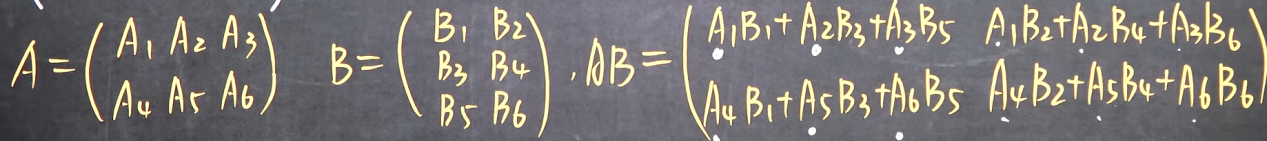 A = ( A₁ A₂ A₃
A₄ A₅ A₆ )
B = ( B₁ B₂
B₃ B₄
B₅ B₆ ) ,
AB = ( A₁B₁+A₂B₃+A₃B₅ A₁B₂+A₂B₄+A₃B₆
A₄B₁+A₅B₃+A₆B₅ A₄B₂+A₅B₄+A₆B₆ )